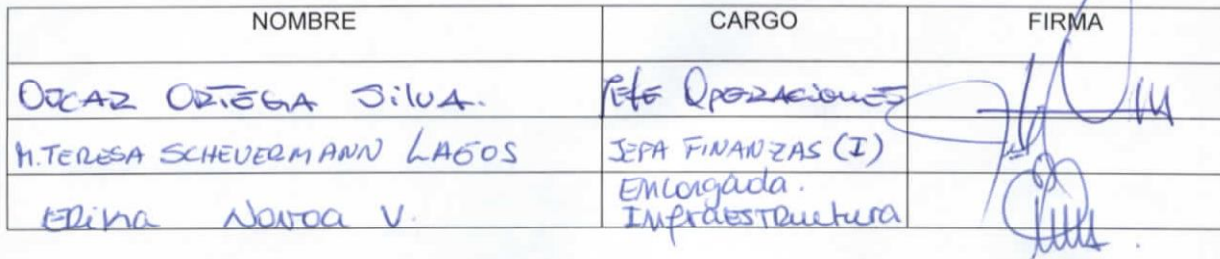 NOMBRE CARGO FIRMA
OSCAR ORTEGA SILVA. Jefe OPERACIONES
M. TERESA SCHEUERMANN LAGOS JEFA FINANZAS (I)
Encargada.
ERINA NOVOA V. INFRAESTRUCTURA